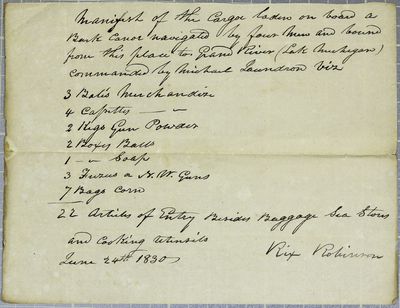 Manifest of the Cargo laden on board a
Bark Canoe navigated by four men and bound
from this place to Grand River (Lake Michigan)
commanded by Michael Laundron Viz
3 Bales Merchandize
4 Cassettes — " —
2 Kegs Gun Powder
2 Boxes Balls
1 — " — Soap
3 Fuzees a N.W. Guns
7 Bags Corn
22 Articles of Entry Besides Baggage Sea Stores
and cooking utensils
June 24th 1830
Rix Robinson